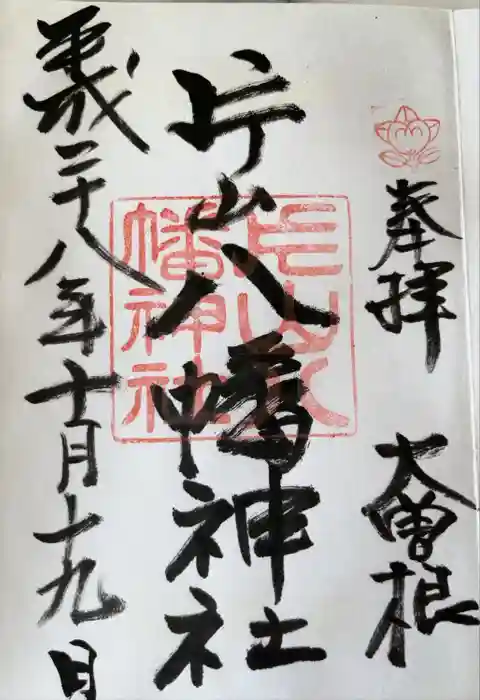 奉拝 大曽根
片山八幡神社
平成二十八年十月十九日
片山八
幡神社